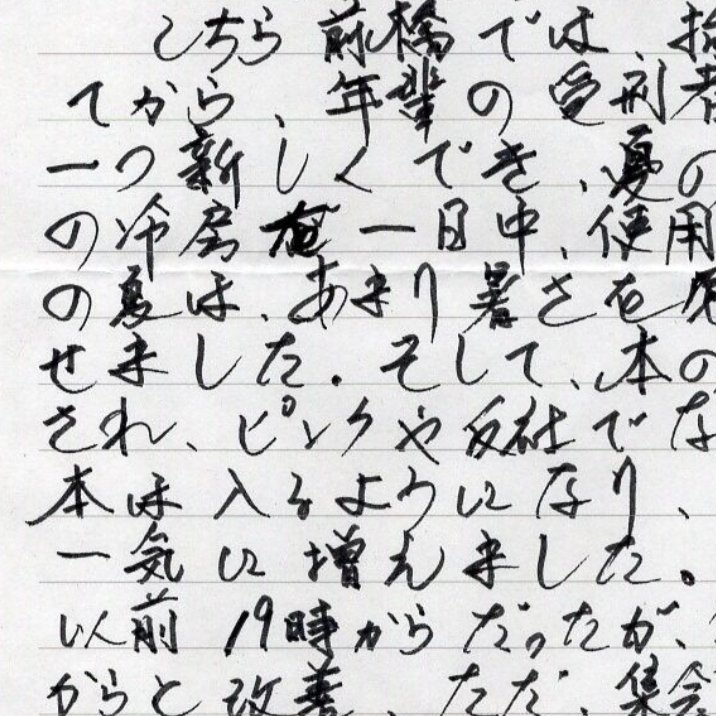 こちら前橋では、拘
てから、年輩の受刑者
一つ新しくでき、夏の
の冷房が一日中、使用
の夏は、あまり暑さを感
せました。そして、本の
され、ピンクや反社でな
本は入るようになり、
一気に増えました。
以前19時からだったが、
からと改善、ただ、集会